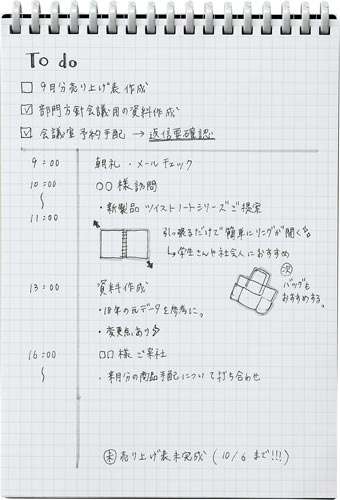 To do
9月分売り上げ表作成
部門方針会議用の資料作成
会議室予約手配 → 返信要確認
9:00 朝礼・メールチェック
10:00 〇〇様訪問
〜
・新製品 ツイストノートシリーズご提案
11:00
引っ張るだけで簡単にリングが開く
↳学生さんや社会人におすすめ
次
バッグも
おすすめする。
13:00 資料作成
・18年の元データを参考に。
・変更点あり
16:00 □□様ご来社
〜
・来月分の商品手配について打ち合わせ
未 売り上げ表未完成 (10/6まで!!!)